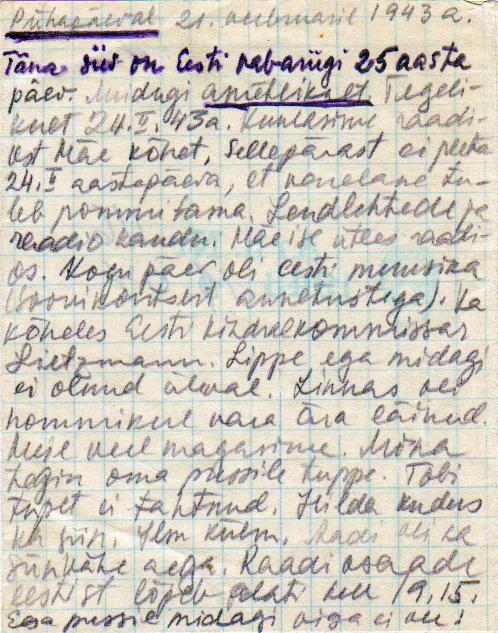 Pühapäeval 21. veebruaril 1943 a.
Täna siis on Eesti vabariigi 25 aasta
päev. Muidugi ametlikult. Tegeli-
kult 24.II.43a. Kuulasime raadi-
ost Mäe kõnet, Sellepärast ei peeta
24.II aastapäeva, et venelane tu-
leb pommitama. Lendlehtede ja
raadio kaudu. Mäe ise ütles raadi-
os. Kogu päev oli eesti muusika
(Soovikontsert annetustega). Ka
kõneles Eesti kindralkommissar
Lietzmann. Lippe ega midagi
ei olnud üleval. Linnas oli
hommikul vara ära läinud.
Meie veel magasime. Mina
tegin oma püssile tuppe. Tobi
tupet ei tahtnud. Hilda kudus
ka siin. Ilm külm. Raadi oli ka
siin vähe aega. Raadio saade
eestist lõpeb alati kell 19.15.
Ega püssil midagi viga ei ole!